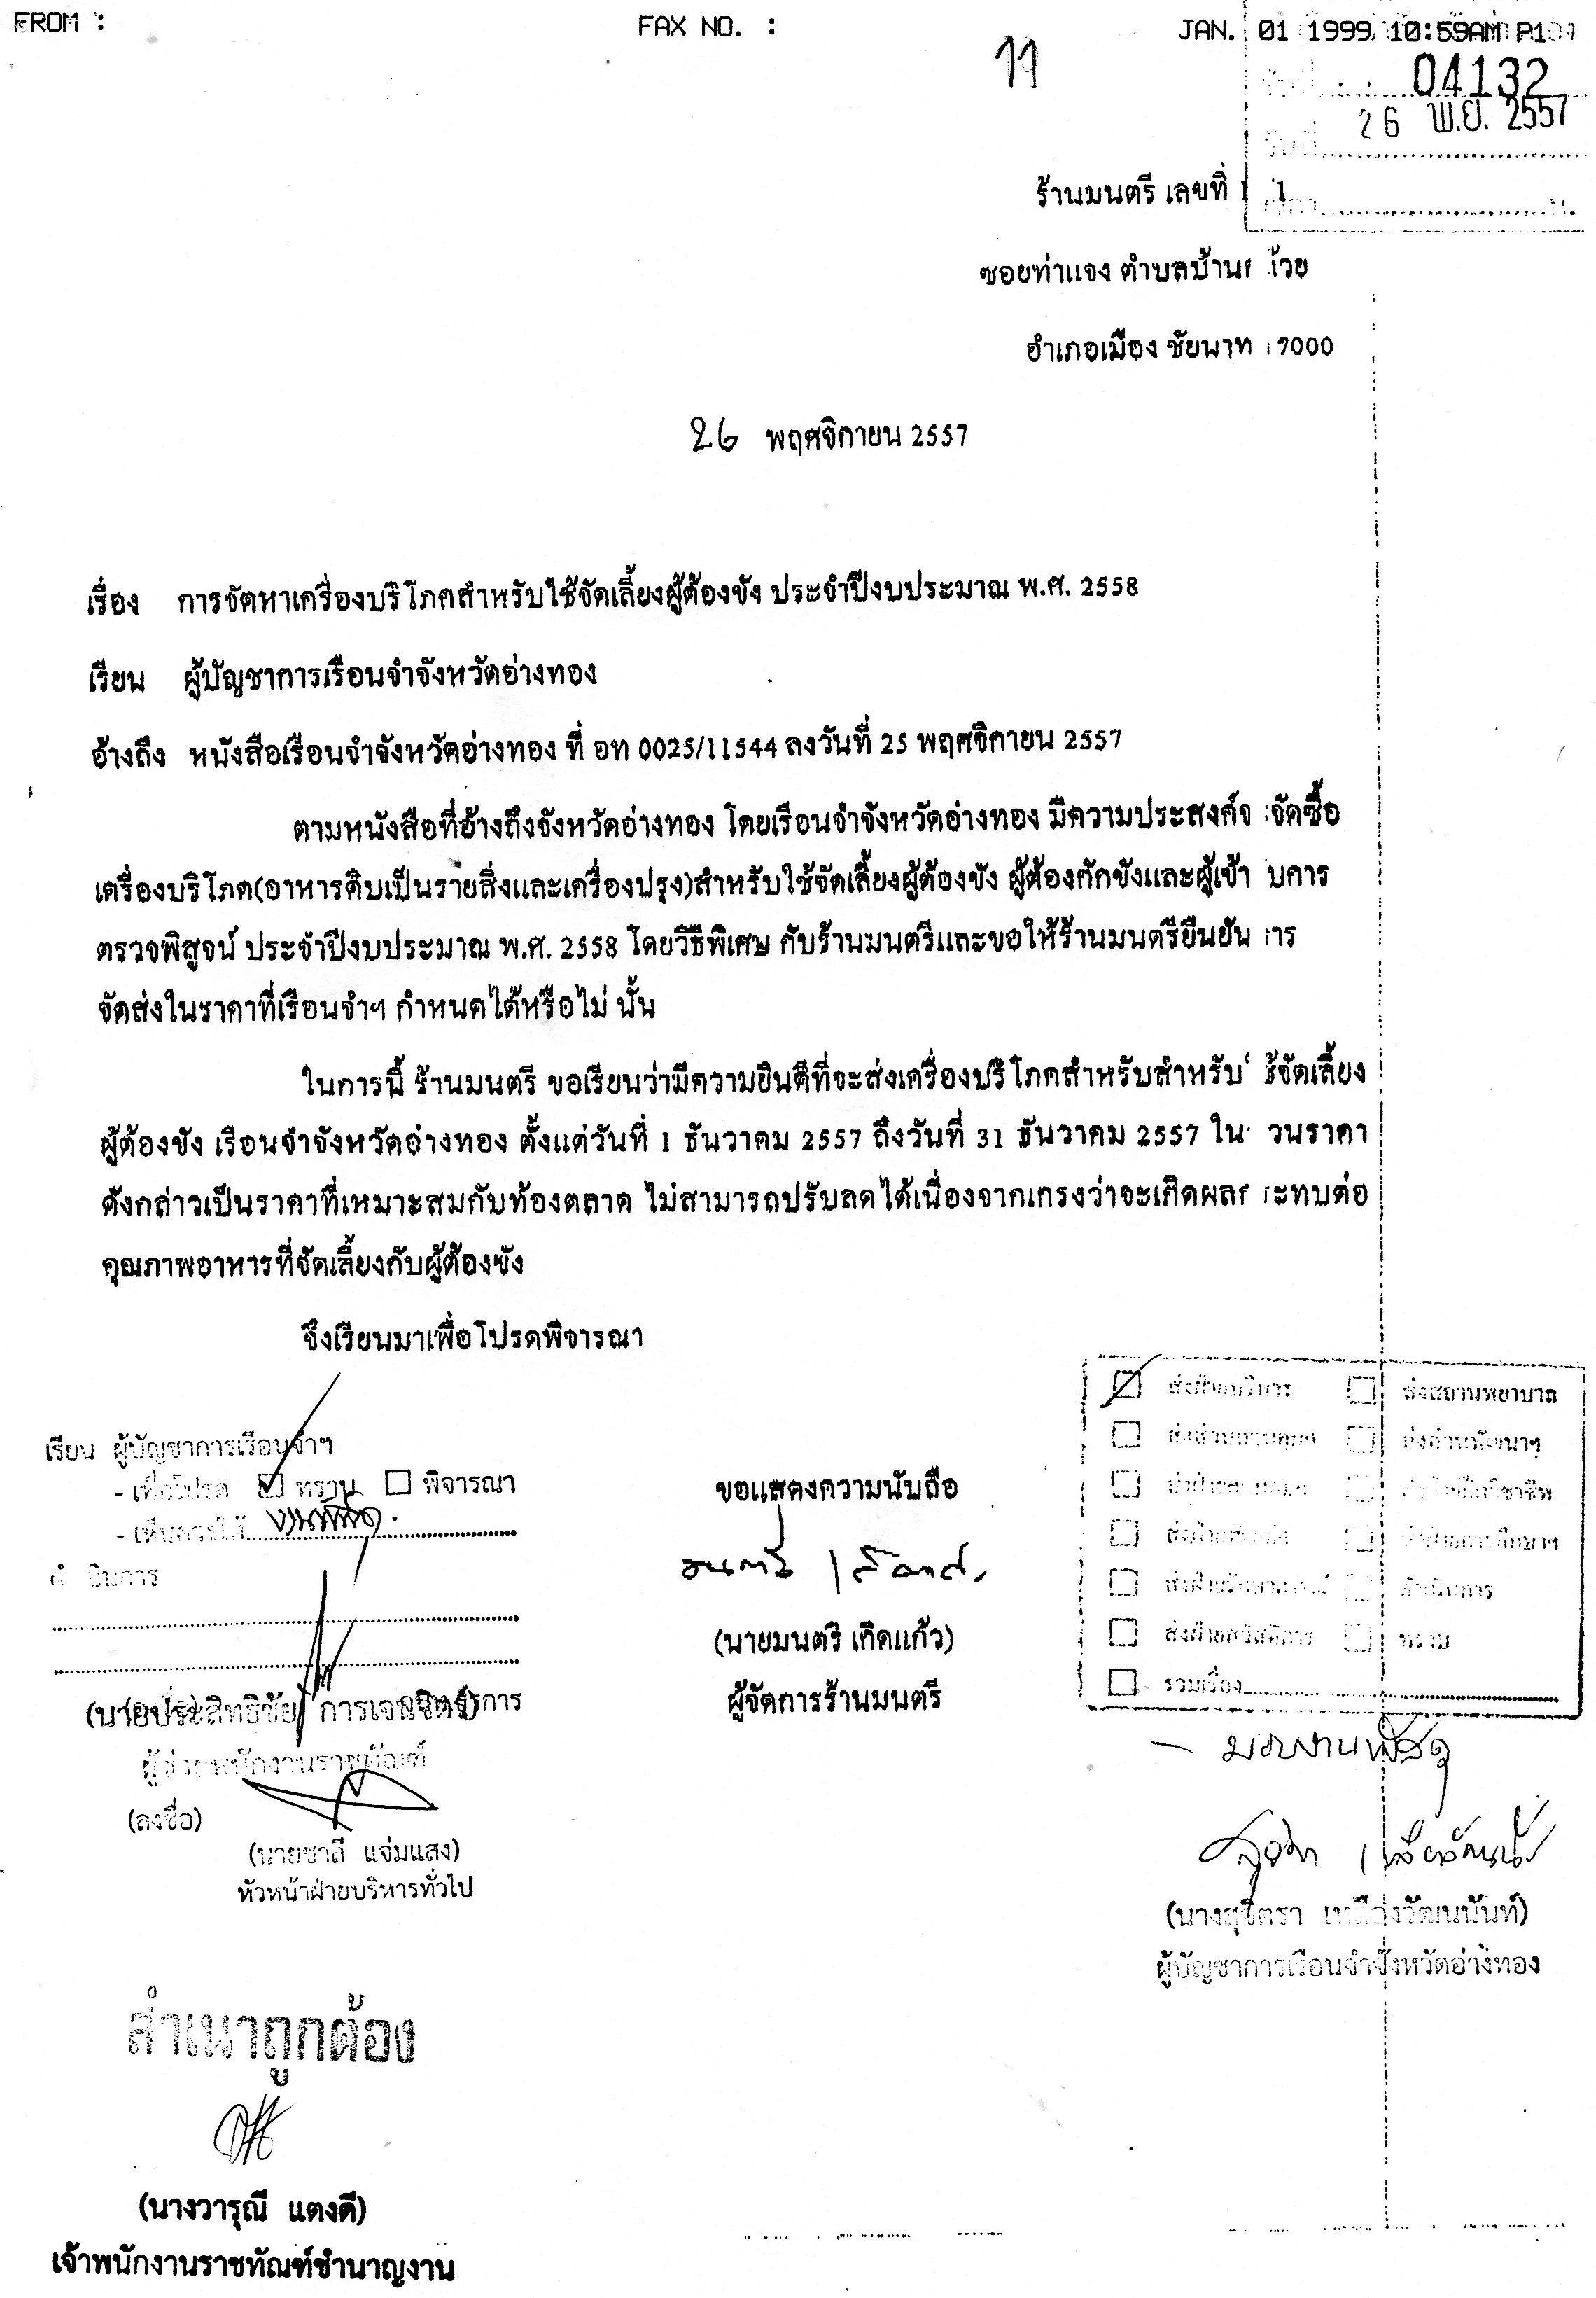 FROM :
FAX NO. :
JAN. 01 1999 10:59AM P1
11
04132
26 พ.ย. 2557
วันที่
ร้านมนตรี เลขที่
ซอยท่าแจง ตำบลบ้าน
อำเภอเมือง ชัยนาท 7000
26 พฤศจิกายน 2557
เรื่อง การจัดหาเครื่องบริโภคสำหรับใช้จัดเลี้ยงผู้ต้องขัง ประจำปีงบประมาณ พ.ศ. 2558
เรียน ผู้บัญชาการเรือนจำจังหวัดอ่างทอง
อ้างถึง หนังสือเรือนจำจังหวัดอ่างทอง ที่ อท 0025/11544 ลงวันที่ 25 พฤศจิกายน 2557
ตามหนังสือที่อ้างถึงจังหวัดอ่างทอง โดยเรือนจำจังหวัดอ่างทอง มีความประสงค์จ จัดซื้อ
เครื่องบริโภค(อาหารดิบเป็นรายสิ่งและเครื่องปรุง)สำหรับใช้จัดเลี้ยงผู้ต้องขัง ผู้ต้องกักขังและผู้เข้า บการ
ตรวจพิสูจน์ ประจำปีงบประมาณ พ.ศ. 2558 โดยวิธีพิเศษ กับร้านมนตรีและขอให้ร้านมนตรียืนยัน าร
จัดส่งในราคาที่เรือนจำฯ กำหนดได้หรือไม่ นั้น
ในการนี้ ร้านมนตรี ขอเรียนว่ามีความยินดีที่จะส่งเครื่องบริโภคสำหรับสำหรับ ช้จัดเลี้ยง
ผู้ต้องขัง เรือนจำจังหวัดอ่างทอง ตั้งแต่วันที่ 1 ธันวาคม 2557 ถึงวันที่ 31 ธันวาคม 2557 ใน วนราคา
ดังกล่าวเป็นราคาที่เหมาะสมกับท้องตลาด ไม่สามารถปรับลดได้เนื่องจากเกรงว่าจะเกิดผลก ระทบต่อ
คุณภาพอาหารที่จัดเลี้ยงกับผู้ต้องขัง
จึงเรียนมาเพื่อโปรดพิจารณา
เรียน ผู้บัญชาการเรือนจำฯ
- เพื่อโปรด ทราบ พิจารณา
- เห็นควรให้ งานพัสดุ
ดำเนินการ
(นายประสิทธิชัย การเจนจิตร์)
ผู้ช่วยพนักงานราชทัณฑ์
(ลงชื่อ)
(นายชาลี แจ่มแสง)
หัวหน้าฝ่ายบริหารทั่วไป
ขอแสดงความนับถือ
(นายมนตรี เกิดแก้ว)
ผู้จัดการร้านมนตรี
ส่งฝ่ายบริหาร ส่งสถานพยาบาล
ส่งส่วนควบคุมฯ ส่งส่วนพัฒนาฯ
ดำเนินการ
ส่งฝ่ายสวัสดิการ ทราบ
รวมเรื่อง
- มอบงานพัสดุ
(นางสุจิตรา เหลืองวัฒนนันท์)
ผู้บัญชาการเรือนจำจังหวัดอ่างทอง
สำเนาถูกต้อง
(นางวารุณี แตงดี)
เจ้าพนักงานราชทัณฑ์ชำนาญงาน